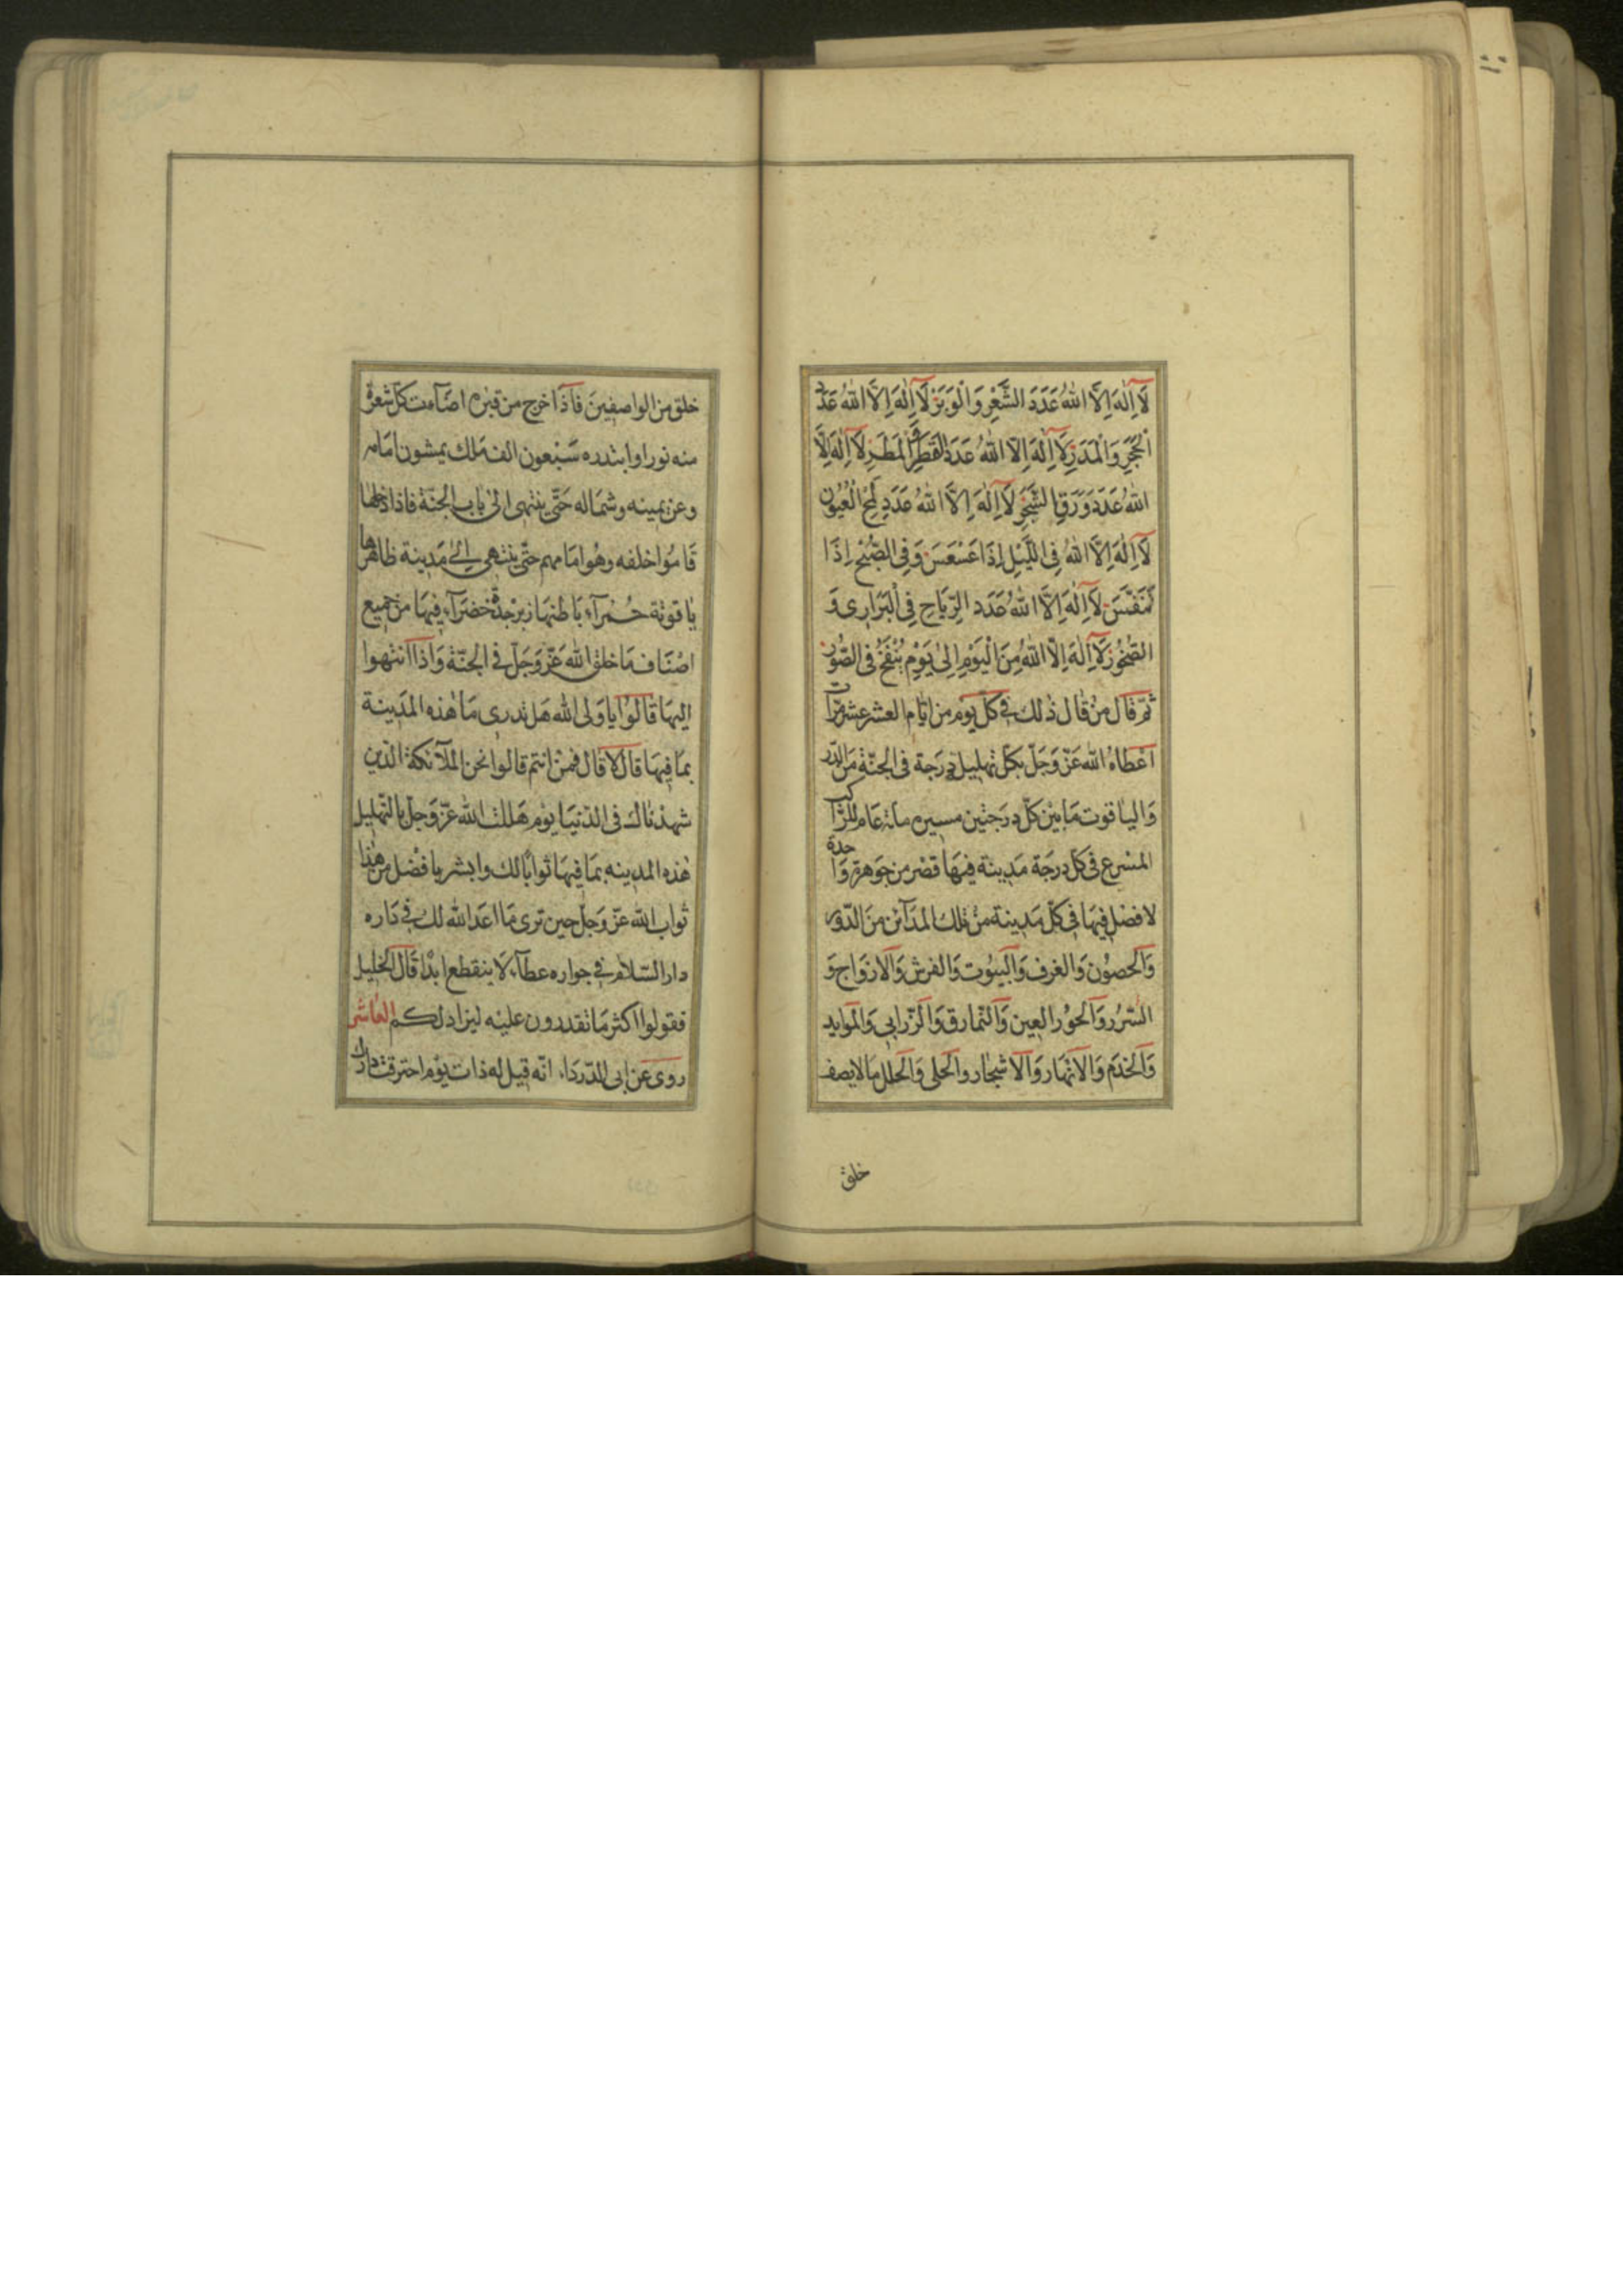 لَا اِلٰهَ اِلَّا اللهُ عَدَدَ الشَّعْرِ وَالْوَبَرِ لَا اِلٰهَ اِلَّا اللهُ عَدَدَ
الْحَجَرِ وَالْمَدَرِ لَا اِلٰهَ اِلَّا اللهُ عَدَدَ الْقَطْرِ وَ الْمَطَرِ لَا اِلٰهَ اِلَّا
اللهُ عَدَدَ وَرَقِ الشَّجَرِ لَا اِلٰهَ اِلَّا اللهُ عَدَدَ لَمْحِ الْعُيُونِ
لَا اِلٰهَ اِلَّا اللهُ فِى اللَّيْلِ اِذَا عَسْعَسَ وَفِى الصُّبْحِ اِذَا
تَنَفَّسَ لَا اِلٰهَ اِلَّا اللهُ عَدَدَ الرِّيَاحِ فِى الْبَرَارِى وَ
الصُّخُورِ لَا اِلٰهَ اِلَّا اللهُ مِنَ الْيَوْمِ اِلٰى يَوْمِ يُنْفَخُ فِى الصُّورِ
ثمّ قال من قال ذٰلك فى كلّ يوم من ايّام العشر عشر مرّات
اعطاه الله عزّ وجلّ بكلّ تهليل درجة فى الجنّة من الدّر
واليٰاقوت مابين كلّ درجتين مسيره مائة عام للرّاكب
المسرع فى كلّ درجة مدينة فيها قصر من جوهرة واحدة
لا فصل فيها فى كلّ مدينة من تلك المدآئن من الدّور
والحصون والغرف والبيوت والفرش والازواج و
السّرر والحور العين والنّمارق والزّرابى والموايد
والخدم والانهار والاشجار والحلى والحلل ما لا يصف
خلق
خلق من الواصفين فاذا خرج من قبره اضآءت كلّ شعرة
منه نورا وابتدره سبعون الف ملك يمشون امامه
وعن يمينه وشماله حتّى ينتهى الىٰ باب الجنّة فاذا دخلها
قاموا خلفه وهو امامهم حتّى ينتهى الىٰ مدينة ظاهرها
ياقوتة حمرآء باطنها زبرجدة خضرآء فيها من جميع
اصناف ما خلق الله عزّ وجلّ فى الجنّة واذا انتهوا
اليها قالوا يا ولى الله هل تدرى ما هٰذه المدينة
بما فيها قال لا قال فمن انتم قالوا نحن الملآئكة الّذين
شهدناك فى الدّنيا يوم هللت الله عزّ وجلّ بالتّهليل
هٰذه المدينه بما فيها ثوابا لك وابشر بافضل من هٰذا
ثواب الله عزّ وجلّ حين ترى ما اعد الله لك فى داره
دار السّلام فى جواره عطآء لا ينقطع ابدًا قال الخليل
فقولوا اكثر ما تقدرون عليه ليزاد لكم العاشر
روى عن ابى الدّرداء انّه قيل له ذات يوم احترقت دارك